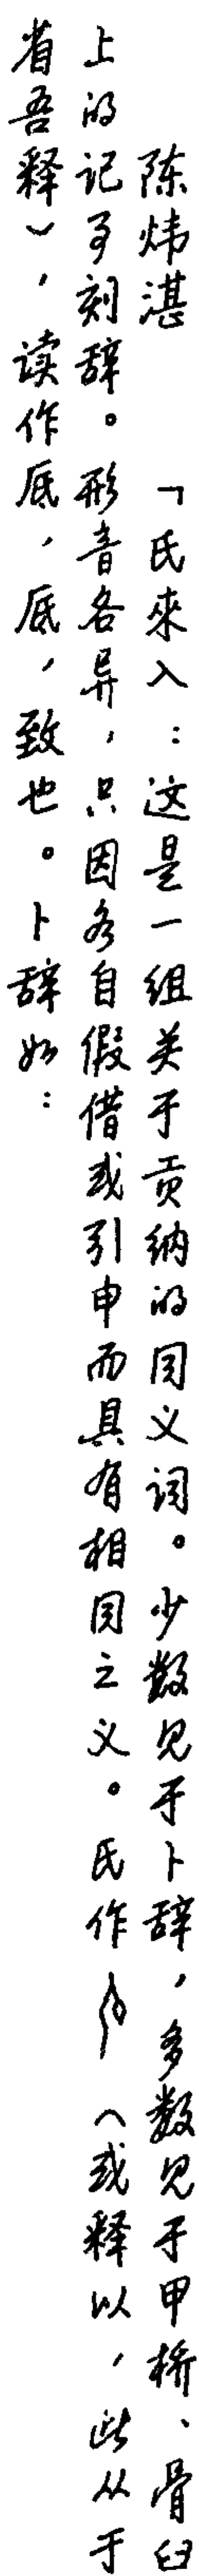 陈炜湛　「氏來入：这是一组关于贡纳的同义词。少数见于卜辞，多数见于甲桥、骨臼
上的记事刻辞。形音各异，只因各自假借或引申而具有相同之义。氏作（或释以，此从于
省吾释），读作厎，厎，致也。卜辞如：